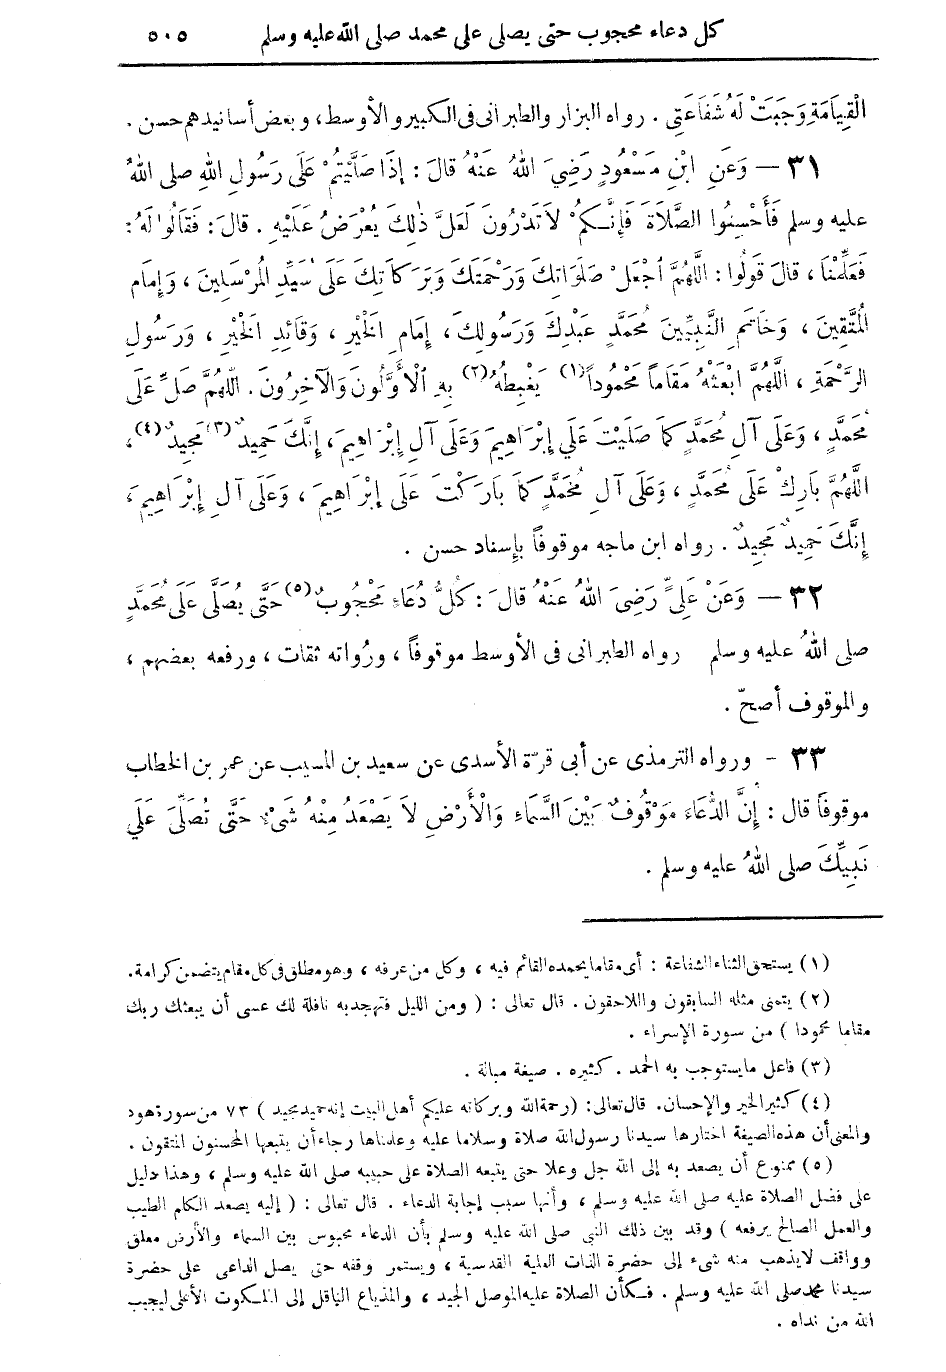 كل دعاء محجوب حتى يصلى على محمد صلى الله عليه وسلم ٥٠٥
الْقِيَامَةِ وَجَبَتْ لَهُ شَفَاعَتِى . رواه البزار والطبرانى فى الكبير والأوسط، وبعض أسانيدهم حسن .
٣١ – وَعَنِ ابْنِ مَسْعُودٍ رَضِيَ اللهُ عَنْهُ قالَ : إِذَا صَلَّيْتُمْ عَلَى رَسُولِ اللهِ صلى اللهُ
عليه وسلم فَأَحْسِنُوا الصَّلَاةَ فَإِنَّكُمْ لَا تَدْرُونَ لَعَلَّ ذٰلِكَ يُعْرَضُ عَلَيْهِ . قالَ : فَقَالُوا لَهُ :
فَعَلِّمْنَا ، قالَ قُولُوا : اللَّهُمَّ اجْعَلْ صَلَوَاتِكَ وَرَحْمَتَكَ وَبَرَكَاتِكَ عَلَى سَيِّدِ الْمُرْسَلِينَ ، وَإِمَامِ
الْمُتَّقِينَ ، وَخَاتَمِ النَّبِيِّينَ مُحَمَّدٍ عَبْدِكَ وَرَسُولِكَ ، إِمَامِ الْخَيْرِ ، وَقَائِدِ الْخَيْرِ ، وَرَسُولِ
الرَّحْمَةِ ، اللَّهُمَّ ابْعَثْهُ مَقَاماً مَحْمُوداً (١) يَغْبِطُهُ (٢) بِهِ الْأَوَّلُونَ وَالْآخِرُونَ . اللَّهُمَّ صَلِّ عَلَى
مُحَمَّدٍ ، وَعَلَى آلِ مُحَمَّدٍ كَمَا صَلَيْتَ عَلَى إِبْرَاهِيمَ وَعَلَى آلِ إِبْرَاهِيمَ ، إِنَّكَ حَمِيدٌ (٣) مَجِيدٌ (٤) ،
اللَّهُمَّ بَارِكْ عَلَى مُحَمَّدٍ ، وَعَلَى آلِ مُحَمَّدٍ كَمَا بَارَكْتَ عَلَى إِبْرَاهِيمَ ، وَعَلَى آلِ إِبْرَاهِيمَ ،
إِنَّكَ حَمِيدٌ مَجِيدٌ . رواه ابن ماجه موقوفاً بإسناد حسن .
٣٢ – وَعَنْ عَلِيٍّ رَضِىَ اللهُ عَنْهُ قالَ : كُلُّ دُعَاءٍ مَحْجُوبٌ (٥) حَتَّى يُصَلَّى عَلَى مُحَمَّدٍ
صلى اللهُ عليه وسلم رواه الطبرانى فى الأوسط موقوفاً ، ورُواته ثقات ، ورفعه بعضهم ،
والموقوف أصحّ .
٣٣ - ورواه الترمذى عن أبى قرّة الأسدى عن سعيد بن المسيب عن عمر بن الخطاب
موقوفاً قال : إِنَّ الدُّعَاءَ مَوْقُوفٌ بَيْنَ السَّمَاءِ وَالْأَرْضِ لَا يَصْعَدُ مِنْهُ شَىْءٌ حَتَّى تُصَلِّىَ عَلَى
نَبِيِّكَ صلى اللهُ عليه وسلم .
(١) يستحق الثناء الشفاعة : أى مقاما يحمده القائم فيه ، وكل من عرفه ، وهو مطلق فى كل مقام يتضمن كرامة .
(٢) يتمنى مثله السابقون واللاحقون . قال تعالى : ( ومن الليل فتهجد به نافلة لك عسى أن يبعثك ربك
مقاما محمودا ) من سورة الإسراء .
(٣) فاعل ما يستوجب به الحمد . كثيره . صيغة مبالة .
(٤) كثير الخير والإحسان . قال تعالى : (رحمة الله وبركاته عليكم أهل البيت إنه حميد مجيد ) ٧٣ من سورة هود
والمعنى أن هذه الصيغة اختارها سيدنا رسول الله صلاة وسلاما عليه وعلمناها رجاء أن يتبعها المحسنون المتقون .
(٥) ممنوع أن يصعد به إلى الله جل وعلا حتى يتبعه الصلاة على حبيبه صلى الله عليه وسلم ، وهذا دليل
على فضل الصلاة عليه صلى الله عليه وسلم ، وأنها سبب إجابة الدعاء . قال تعالى : ( إليه يصعد الكلم الطيب
والعمل الصالح يرفعه ) وقد بين ذلك النبى صلى الله عليه وسلم بأن الدعاء محبوس بين السماء والأرض معلق
وواقف لا يذهب منه شىء إلى حضرة الذات العلية القدسية ، ويستمر وقفه حتى يصل الداعى على حضرة
سيدنا محمد صلى الله عليه وسلم . فكأن الصلاة عليه الموصل الجيد ، والمذياع الناقل إلى الملكوت الأعلى ليجيب
الله من نداه .